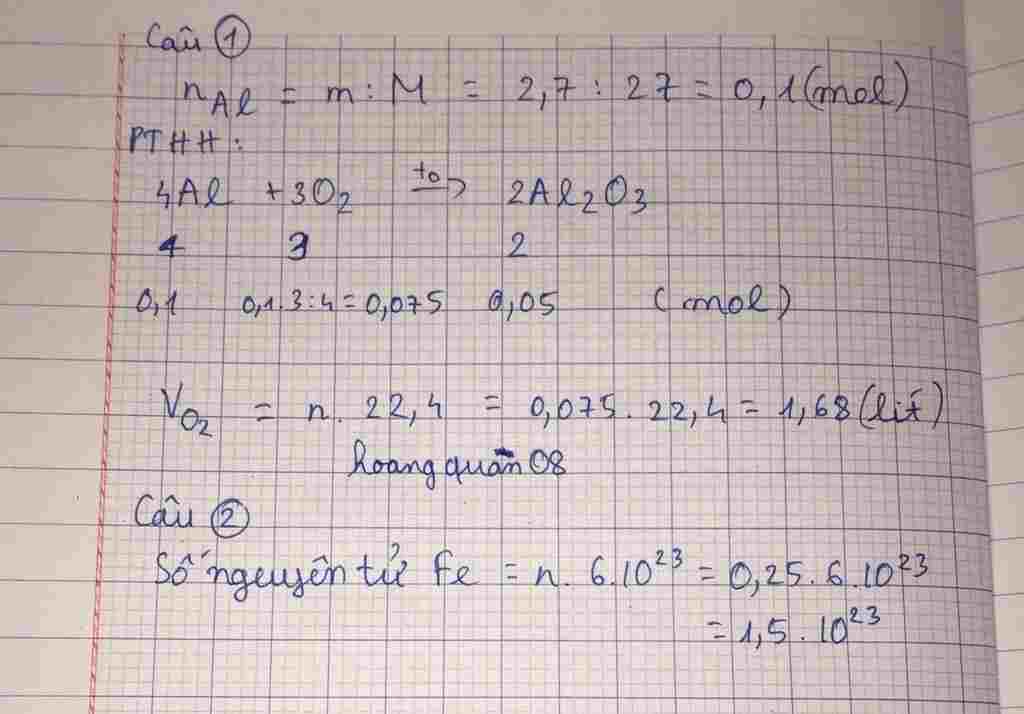 Câu ①
nAl = m : M = 2,7 : 27 = 0,1 (mol)
PTHH :
4Al + 3O₂ →(to) 2Al₂O₃
4 3 2
0,1 0,1.3:4 = 0,075 0,05 (mol)
VO₂ = n. 22,4 = 0,075. 22,4 = 1,68 (lít)
hoangquan08
Câu ②
Số nguyên tử Fe = n. 6.10²³ = 0,25.6.10²³
= 1,5 . 10²³